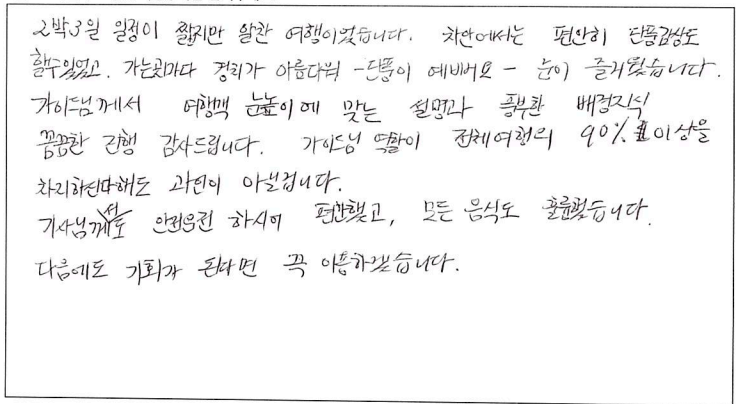 2박3일 일정이 짧지만 알찬 여행이었습니다. 차안에서는 편안히 단풍감상도
할수있었고. 가는곳마다 경치가 아름다워 - 단풍이 예뻐요 - 눈이 즐거웠습니다.
가이드님께서 여행객 눈높이에 맞는 설명과 풍부한 배경지식
꼼꼼한 진행 감사드립니다. 가이드님 역할이 전체여행의 90% 이상을
차지하신다해도 과언이 아닐겁니다.
기사님께서도 안전운전 하시어 편안했고, 모든 음식도 훌륭했습니다.
다음에도 기회가 된다면 꼭 이용하겠습니다.